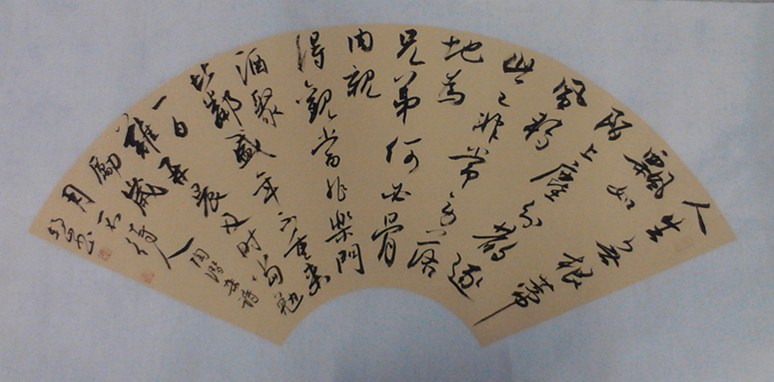 人生無根蒂
飄如
陌上塵分散逐
風轉
此已非常身落
地為
兄弟何必骨
肉親
得歡當作樂鬥
酒聚
比鄰盛年不重來
一日
難再晨及時當勉
勵歲
月不待人
陶潛雜詩